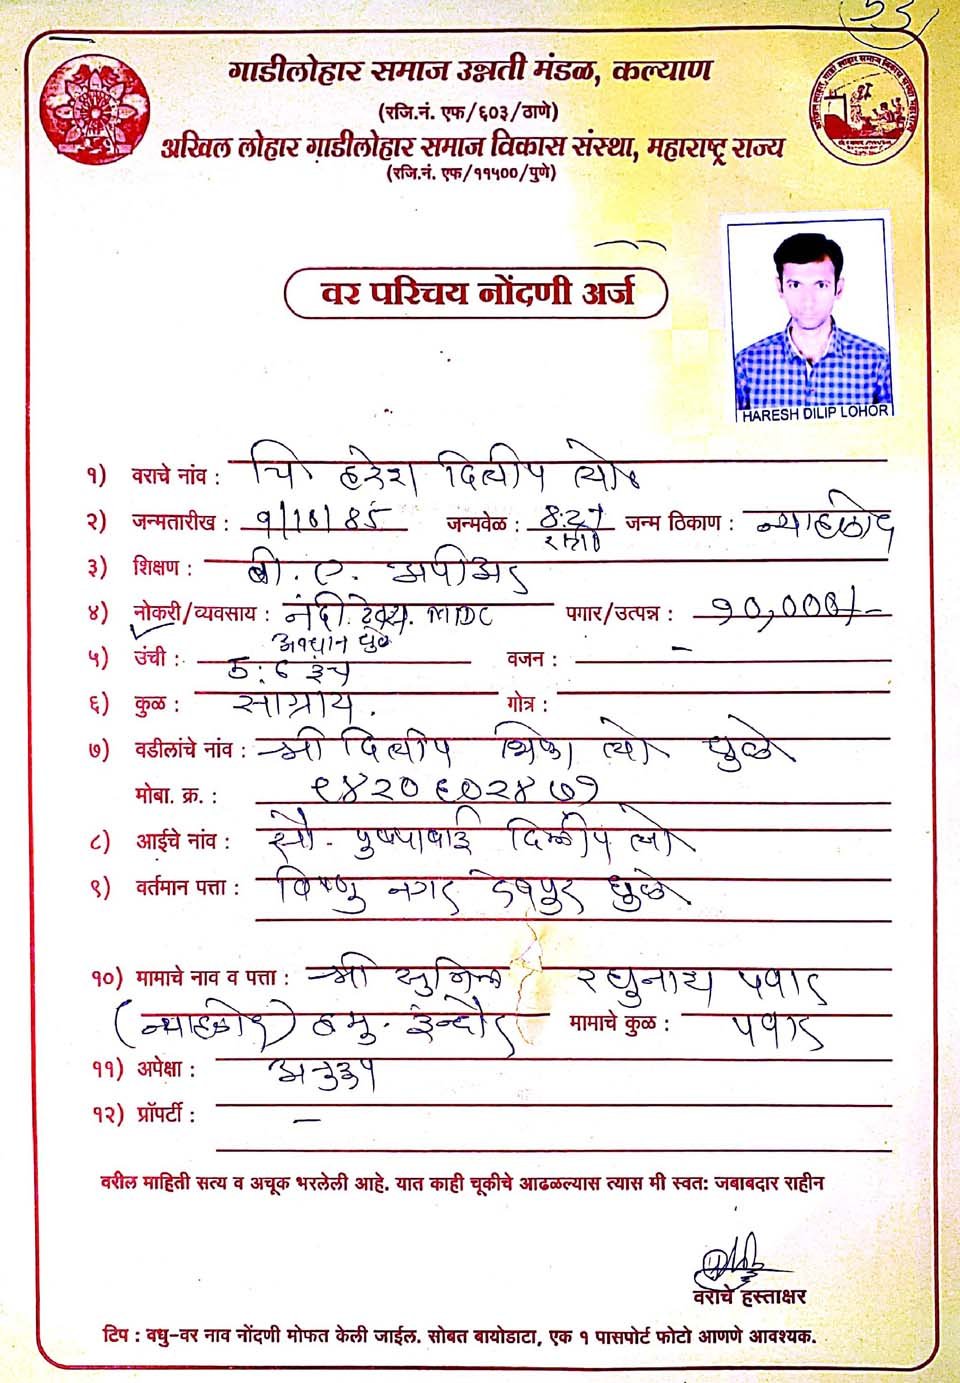 33
गाडीलोहार समाज उन्नती मंडळ, कल्याण
(रजि.नं. एफ/६०३/ठाणे)
अखिल लोहार गाडीलोहार समाज विकास संस्था, महाराष्ट्र राज्य
(रजि.नं. एफ/११५००/पुणे)
वर परिचय नोंदणी अर्ज
HARESH DILIP LOHOR
१) वराचे नांव : चि. हरेश दिलीप लोहार
२) जन्मतारीख : 9/10/85 जन्मवेळ : 8.27 रात्री जन्म ठिकाण : न्याहळोद
३) शिक्षण : बी. ए.
४) नोकरी/व्यवसाय : नंदी. टेक्स. MIDC पगार/उत्पन्न : १०,०००/-
अवधान धुळे
५) उंची : ५:८ इंच वजन : -
६) कुळ : गोत्र :
७) वडीलांचे नांव : श्री दिलीप भिका लो धुळे
मोबा. क्र. : ९४२०६०२४७१
८) आईचे नांव : सौ. पुष्पाबाई दिलीप लो
९) वर्तमान पत्ता : विष्णु नगर देवपुर धुळे
१०) मामाचे नाव व पत्ता : श्री सुनिल रघुनाथ पवार
(न्याहळोद) ह.मु. इन्दौर मामाचे कुळ : पवार
११) अपेक्षा : अनुरुप
१२) प्रॉपर्टी : -
वरील माहिती सत्य व अचूक भरलेली आहे. यात काही चूकीचे आढळल्यास त्यास मी स्वत: जबाबदार राहीन
वराचे हस्ताक्षर
टिप : वधु-वर नाव नोंदणी मोफत केली जाईल. सोबत बायोडाटा, एक १ पासपोर्ट फोटो आणणे आवश्यक.